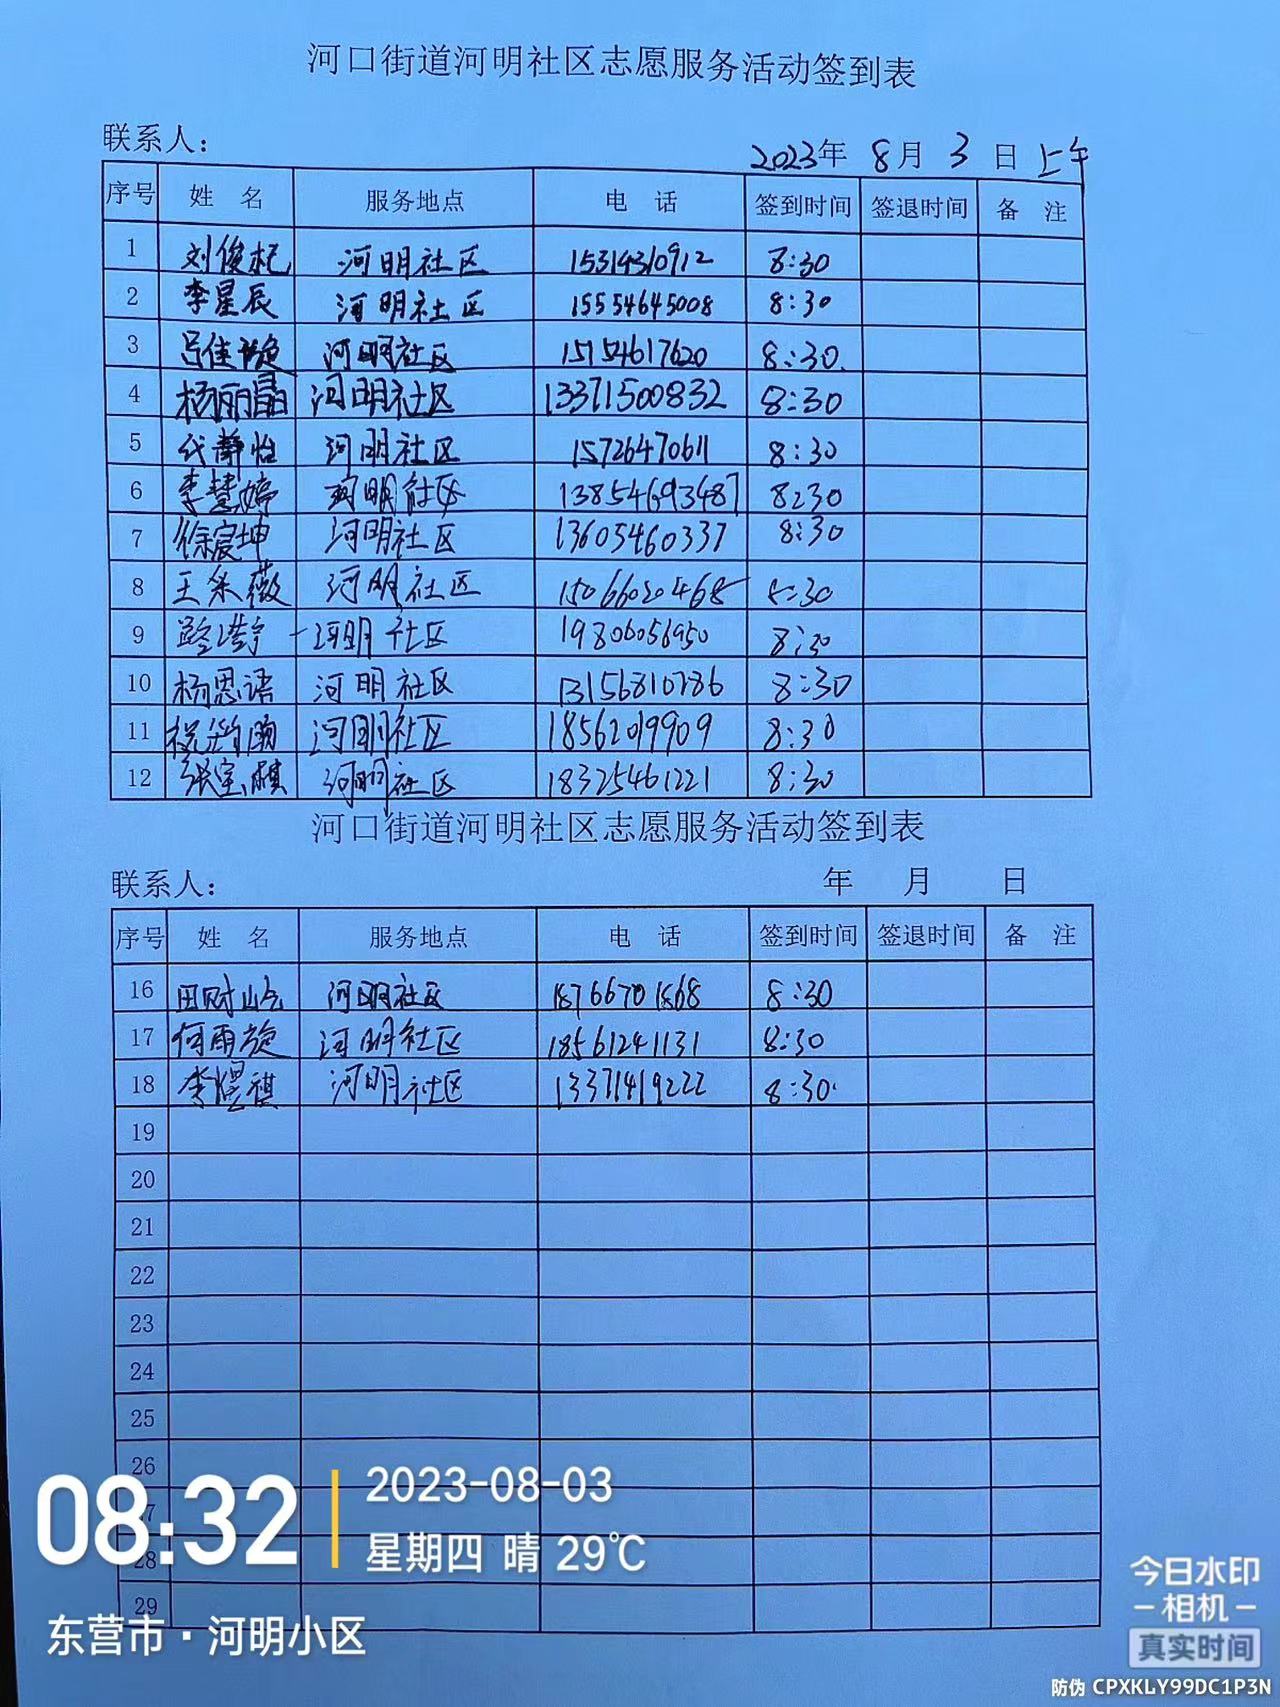 河口街道河明社区志愿服务活动签到表
联系人：
2023年 8月 3 日 上午
序号 姓 名 服务地点 电 话 签到时间 签退时间 备 注
1 刘俊杞 河明社区 15314310912 8:30
2 李星辰 河明社区 15554645008 8:30
3 吕佳 河明社区 15154617620 8:30.
4 杨丽晶 河明社区 13371500832 8:30
5 代静怡 河明社区 15726470611 8:30
6 李慧婷 河明社区 13854693487 8:30
7 徐宸坤 河明社区 13605460337 8:30
8 王采薇 河明社区 15066020468 8:30
9 河明社区 19806056950 8:30
10 杨思语 河明社区 13156810786 8:30
11 祝 河明社区 18562019909 8:30
12 张宝麒 河明社区 18325461221 8:30
河口街道河明社区志愿服务活动签到表
联系人：
年 月 日
序号 姓 名 服务地点 电 话 签到时间 签退时间 备 注
16 田 河明社区 18766701868 8:30
17 何雨旋 河明社区 18561241131 8:30
18 李煜祺 河明社区 13371419222 8:30.
19
20
21
22
23
24
25
26
28
29
08:32
2023-08-03
星期四 晴 29℃
东营市·河明小区
今日水印
相机
真实时间
防伪 CPXKLY99DC1P3N